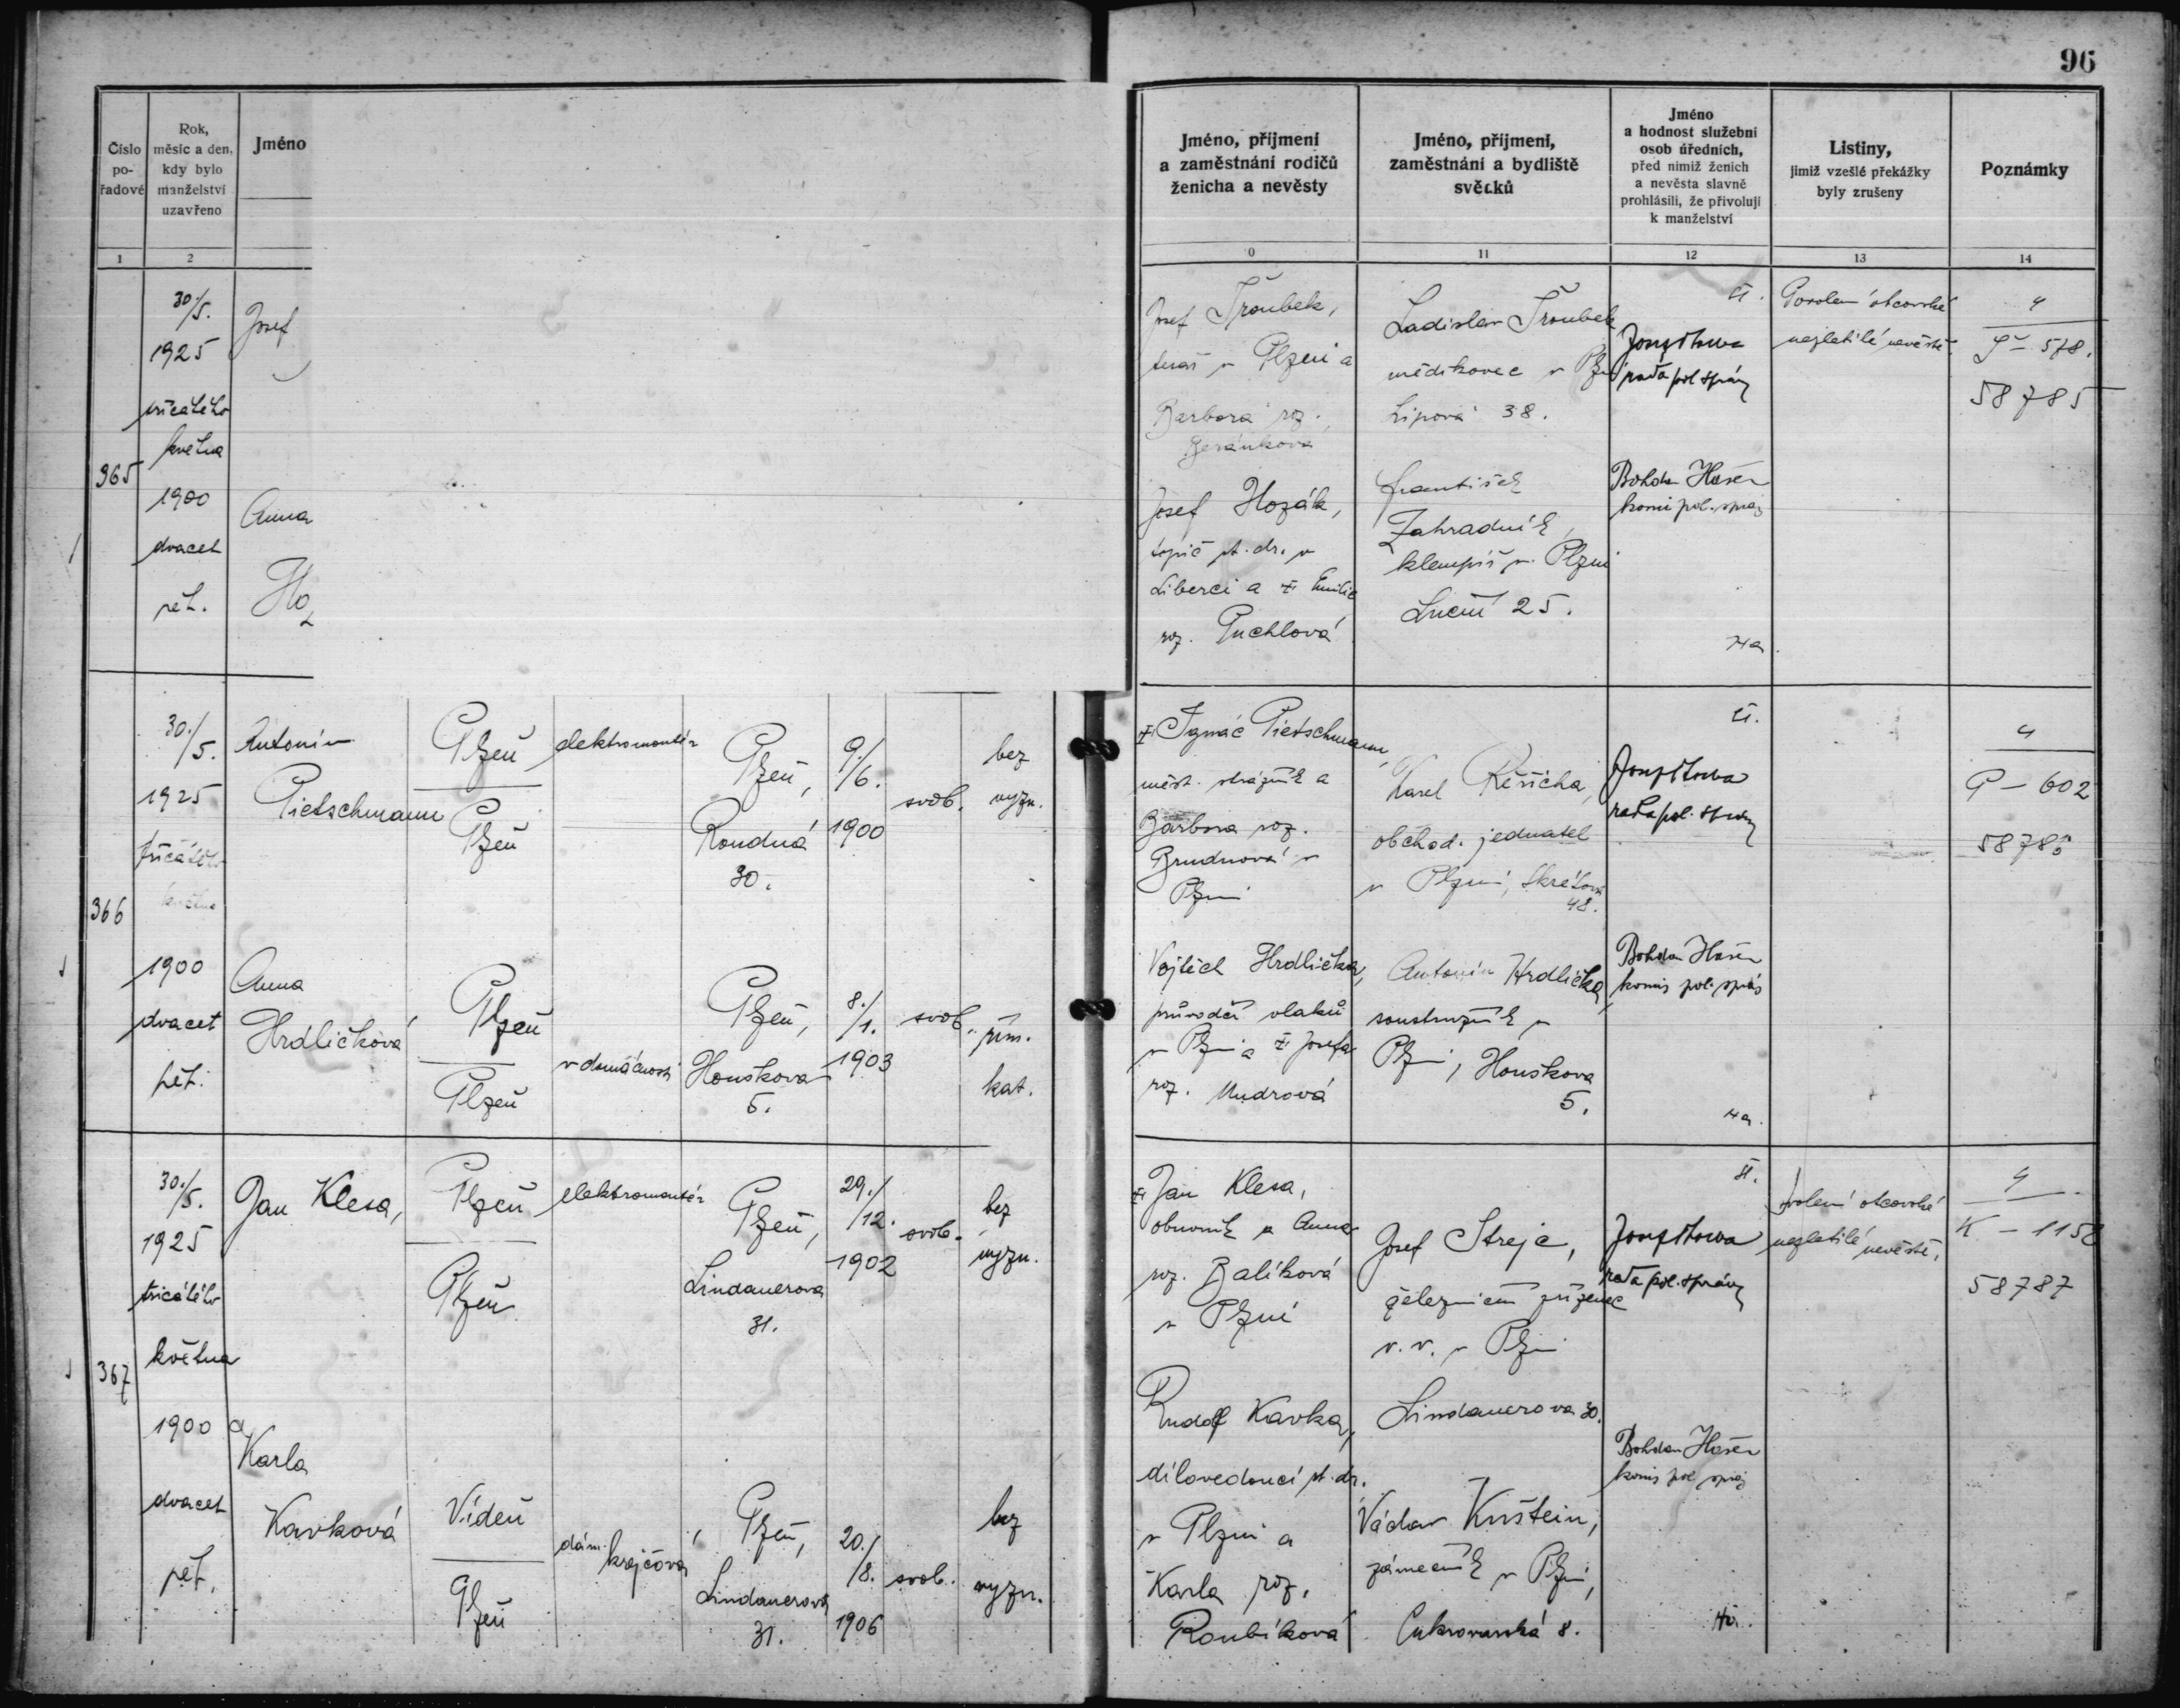 96
Číslo
po-
řadové
Rok,
měsíc a den,
kdy bylo
manželství
uzavřeno
Jméno
Jméno, příjmení
a zaměstnání rodičů
ženicha a nevěsty
Jméno, příjmení,
zaměstnání a bydliště
svědků
Jméno
a hodnost služební
osob úředních,
před nimiž ženich
a nevěsta slavně
prohlásili, že přivolují
k manželství
Listiny,
jimiž vzešlé překážky
byly zrušeny
Poznámky
1
2
0
11
12
13
14
365
30./5.
1925
třicátého
května
1900
dvacet
pět.
Josef
Anna
Ho
Josef Troubek,
v Plzni a
Barbora roz.
Beránkova
Josef Hozák,
topič st. dr. v
Liberci a Emilie
roz. Puchlová
Ladislav Troubek
mědikovec v Plzni
Lipová 38.
František
Zahradník,
klempíř v Plzni
Luční 25.
rada pol. správy
Bohdan Hašen
komis pol. správ
Povolení otcovské
nezletilé nevěstě.
4
578.
58785
366
30./5.
1925
třicátého
května
1900
dvacet
pět.
Antonín
Pietschmann
Plzeň
Plzeň
elektromontér
Plzeň,
Roudná
30.
9./6.
1900
svob.
bez
vyzn.
Anna
Hrdličková
Plzeň
Plzeň
v domácnosti
Plzeň,
Houškova
5.
8./1.
1903
svob.
řím.
kat.
Ignác Pietschmann,
měst. strážník a
Barbora roz.
Brudnová v
Plzni
Vojtěch Hrdlička,
průvodčí vlaků
v Plzni a Josefa
roz. Mudrová
Karel Řeřicha,
obchod. jednatel
v Plzni, Skrétova
48.
Antonín Hrdlička,
soustružník v
Plzni, Houškova
5.
rada pol. správy
Bohdan Hašen
komis pol. správ
4
P – 602
58786
367
30./5.
1925
třicátého
května
1900
dvacet
pět.
Jan Klesa,
Plzeň
Plzeň
elektromontér
Plzeň,
Lindauerova
31.
29./12.
1902
svob.
bez
vyzn.
a
Karla
Kavková
Vídeň
Plzeň
dám. krejčová
Plzeň,
Lindauerova
31.
20./8.
1906
svob.
bez
vyzn.
Jan Klesa,
obuvník a Anna
roz. Balíková
v Plzni
Rudolf Kavka,
dílovedoucí st. dr.
v Plzni a
Karla roz.
Roubíková
Josef Strejc,
železniční zřízenec
v. v. v Plzni
Lindauerova 30.
Václav Kuštein,
zámečník v Plzni,
Cukrovarská 8.
rada pol. správy
Bohdan Hašen
komis pol. správ
Svolení otcovské
nezletilé nevěstě.
4
K – 1158
58787